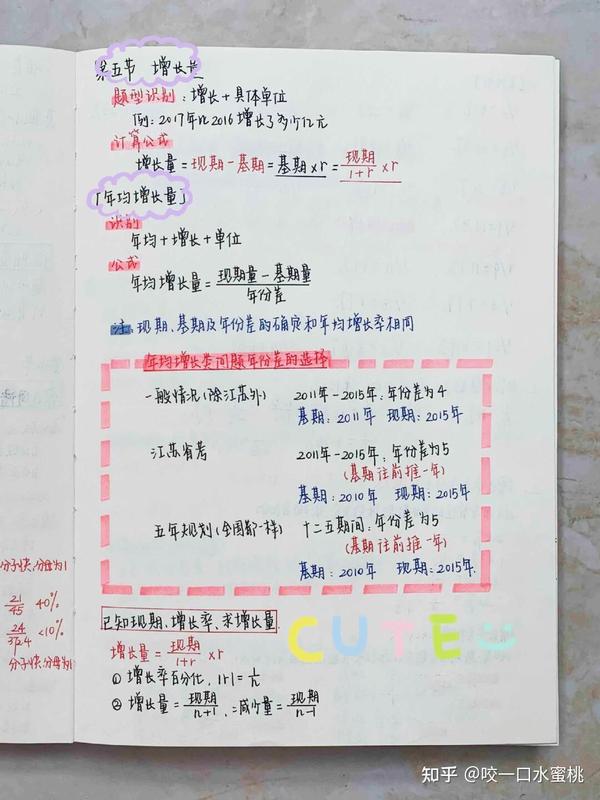 第五节 增长量
题型识别：增长+具体单位
例：2017年比2016增长了多少亿元
计算公式
增长量=现期-基期=基期×r=现期/1+r ×r
「年均增长量」
识别
年均+增长+单位
公式
年均增长量=现期量-基期量/年份差
注：现期、基期及年份差的确定和年均增长率相同
年均增长类问题年份差的选择
一般情况(除江苏外) 2011年-2015年：年份差为4
基期：2011年 现期：2015年
江苏省考 2011年-2015年：年份差为5
(基期往前推一年)
基期：2010年 现期：2015年
五年规划(全国都一样) 十二五期间：年份差为5
(基期往前推一年)
基期：2010年 现期：2015年
已知现期、增长率、求增长量
增长量=现期/1+r ×r
① 增长率百分化，|r|=1/n
② 增长量=现期/n+1，减少量=现期/n-1
CUTE
分母为1
21/45 40%
24 <10%
知乎 @咬一口水蜜桃